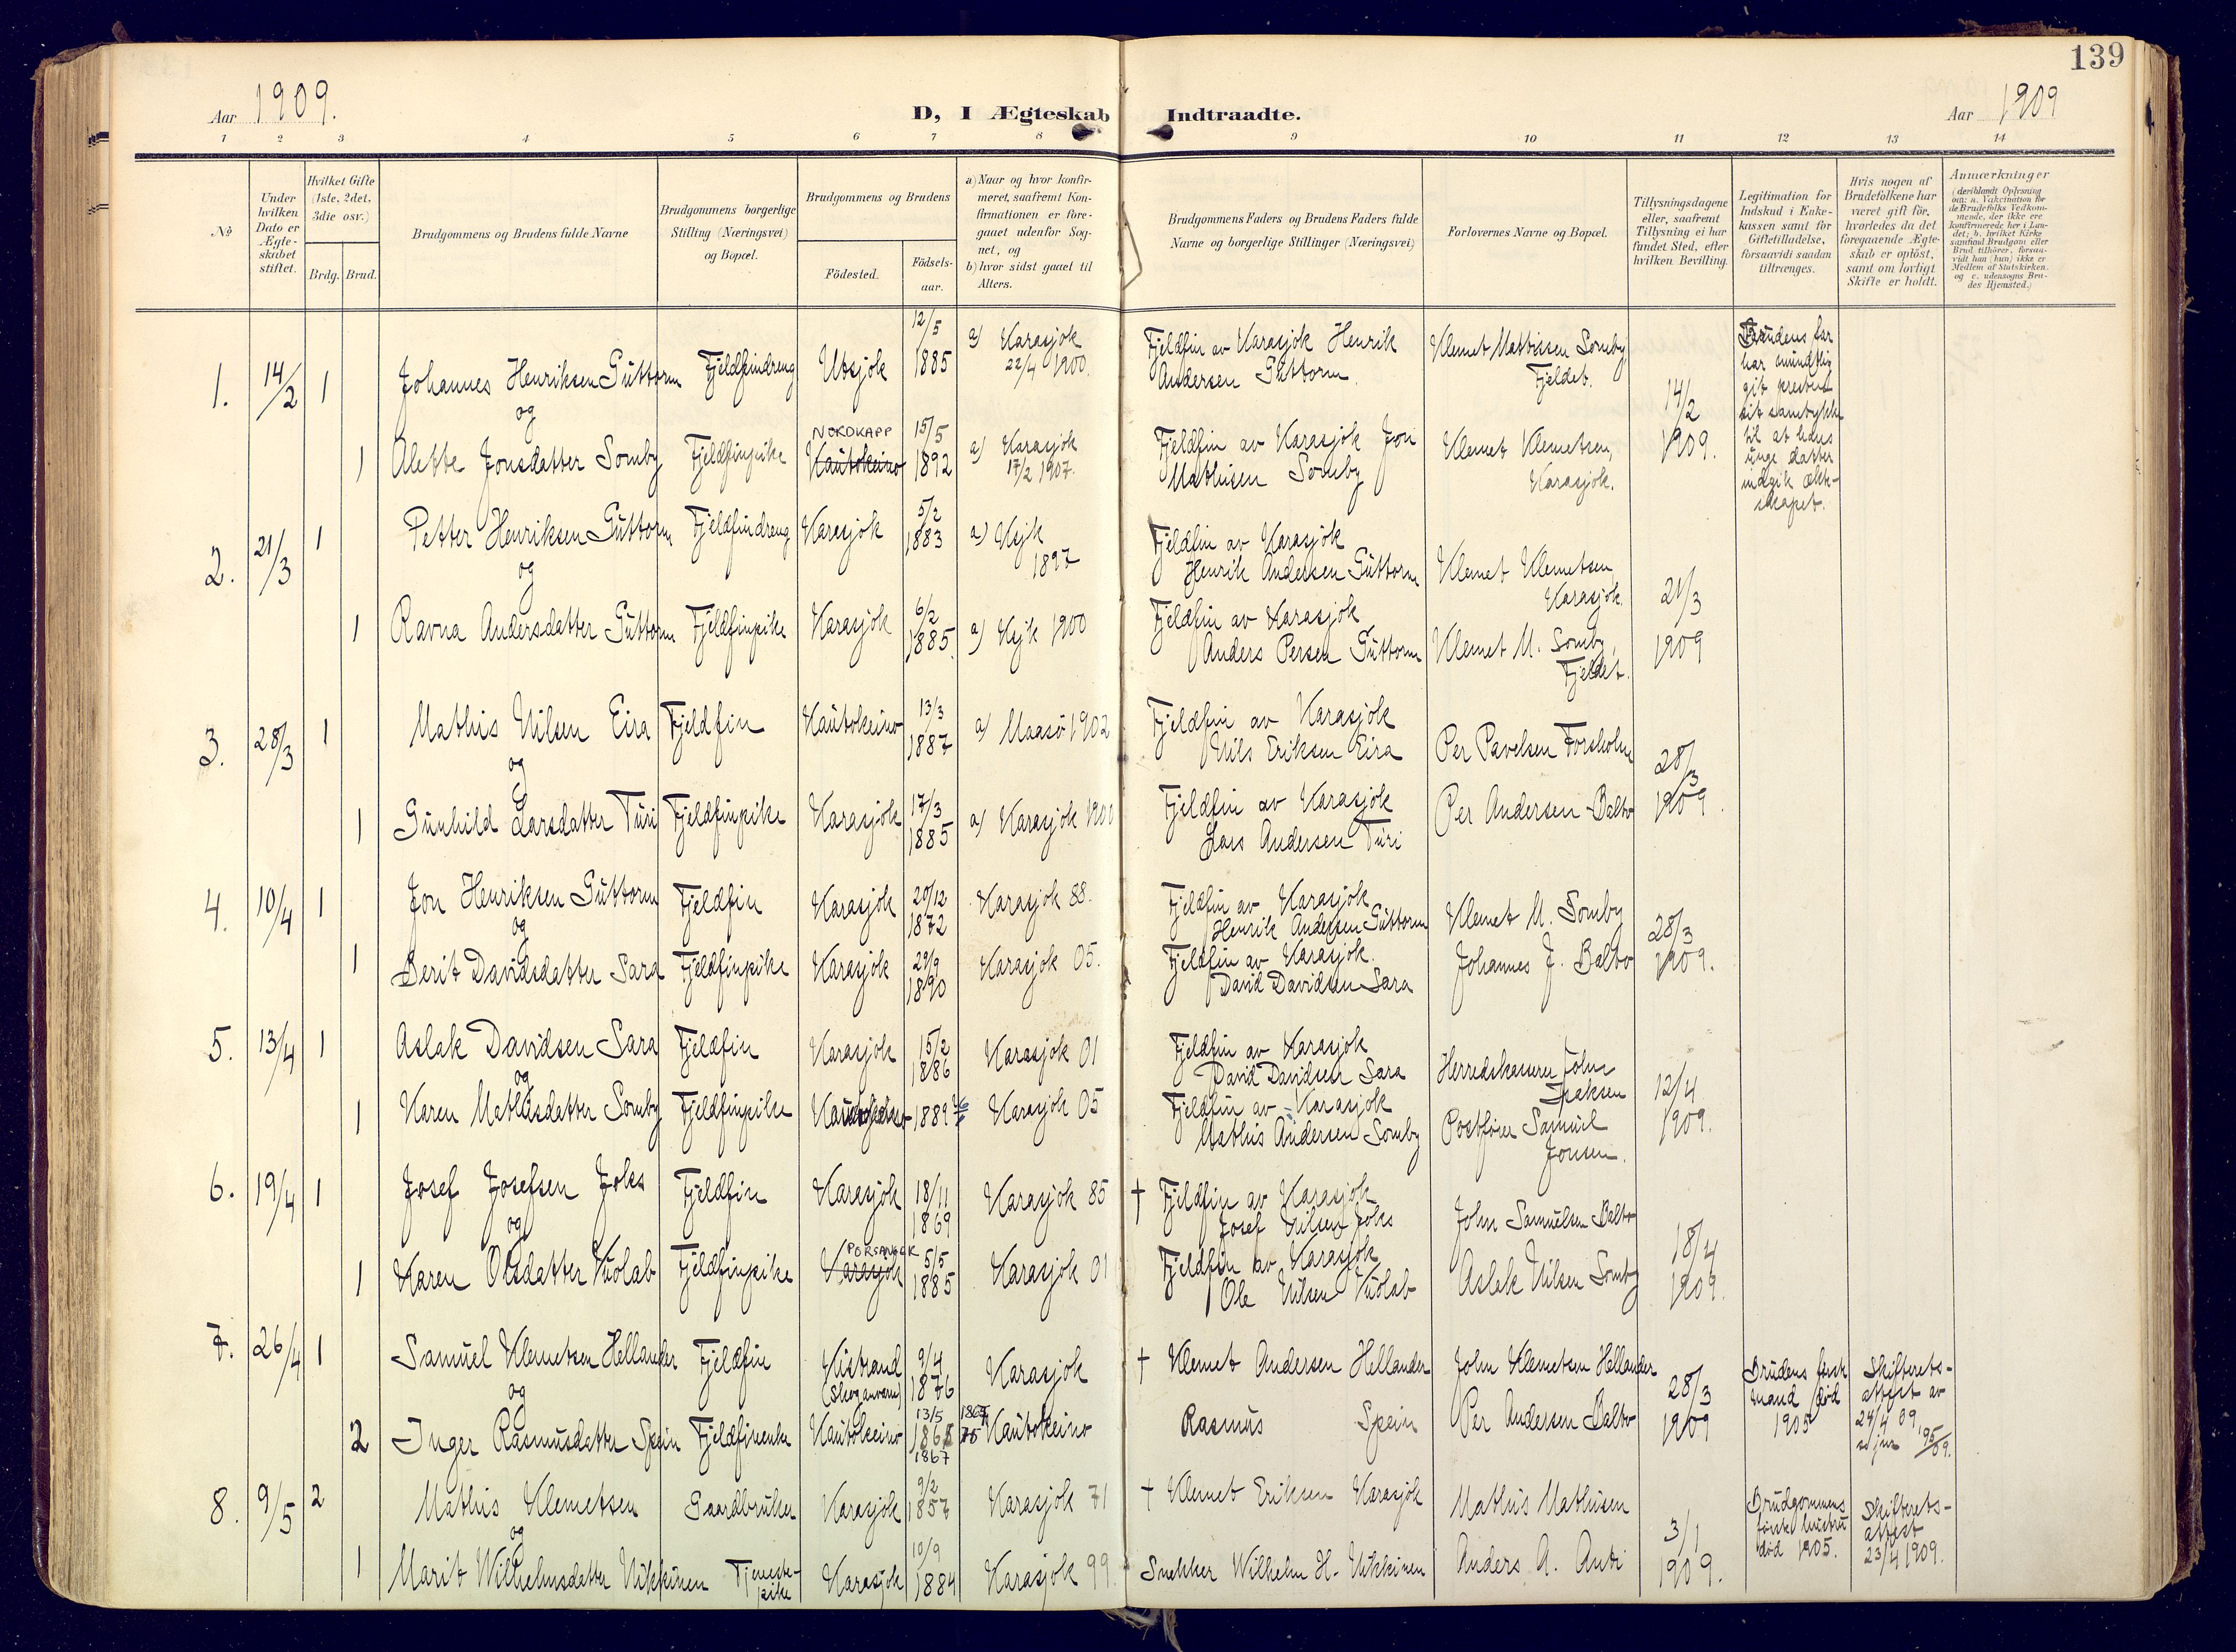 139
Aar 1909.
D, I Ægteskab Indtraadte.
Aar 1909
1 2 3 4 5 6 7 8 9 10 11 12 13 14
No
Under hvilken Dato er Ægteskabet stiftet.
Hvilket Gifte (1ste, 2det, 3die osv.)
Brdg. Brud.
Brudgommens og Brudens fulde Navne
Brudgommens borgerlige Stilling (Næringsvei) og Bopæl.
Brudgommens og Brudens
Fødested.
Fødselsaar.
a) Naar og hvor konfirmeret, saafremt Konfirmationen er foregaaet udenfor Sognet, og
b) hvor sidst gaaet til Alters.
Brudgommens Faders og Brudens Faders fulde Navne og borgerlige Stillinger (Næringsvei)
Forlovernes Navne og Bopæl.
Tillysningsdagene eller, saafremt Tillysning ei har fundet Sted, efter hvilken Bevilling.
Legitimation for Indskud i Enkekassen samt for Giftetilladelse, forsaavidt saadan tiltrænges.
Hvis nogen af Brudefolkene har været gift før, hvorledes da det foregaaende Ægteskab er opløst, samt om lovligt Skifte er holdt.
Anmærkninger (deriblandt Oplysning om: a. Vakcination for de Brudefolks Vedkommende, der ikke ere konfirmerede her i Landet; b. hvilket Kirkesamfund Brudgom eller Brud tilhører, forsaavidt han (hun) ikke er Medlem af Statskirken, og c. udensogns Brudes Hjemsted.)
1. 14/2 1 Johannes Henriksen Guttorm Fjeldfindreng Utsjok 12/5 1885 a) Karasjok 22/4 1900. Fjeldfin av Karasjok Henrik Andersen Guttorm. Klemet Mattissen Somby Fjeldet. 14/2 1909. Brudens far har mundtlig git presten sit samtykke til at hans unge datter indgik ekteskapet.
og
1 Alette Jonsdatter Somby Fjeldfinpike NORDKAPP Kautokeino 15/5 1892 a) Karasjok 17/2 1907. Fjeldfin av Karasjok Jon Mathisen Somby Klemet Klemetsen, Karasjok.
2. 21/3 1 Petter Henriksen Guttorm Fjeldfindreng Karasjok 5/2 1883 a) Ksjk 1897 Fjeldfin av Karasjok Henrik Andersen Guttorm Klemet Klemetsen Karasjok. 21/3 1909
og
1 Ravna Andersdatter Guttorm Fjeldfinpike Karasjok 6/2 1885. a) Ksjk 1900 Fjeldfin av Karasjok Anders Persen Guttorm Klemet M. Somby, Fjeldet.
3. 28/3 1 Mathis Nilsen Eira Fjeldfin Kautokeino 13/3 1887 a) Maasö 1902 Fjeldfin av Karasjok Nils Eriksen Eira Per Pavelsen Forsholm 28/3 1909.
og
1 Gunhild Larsdatter Turi Fjeldfinpike Karasjok 17/3 1885 a) Karasjok 1900 Fjeldfin av Karasjok Lars Andersen Turi Per Andersen Balto
4. 10/4 1 Jon Henriksen Guttorm Fjeldfin Karasjok 20/12 1872 Karasjok 88. Fjeldfin av Karasjok Henrik Andersen Guttorm Klemet M. Somby 28/3 1909.
og
1 Berit Davidsdatter Sara Fjeldfinpike Karasjok 29/9 1890 Karasjok 05. Fjeldfin av Karasjok. David Davidsen Sara Johannes J. Balto
5. 13/4 1 Aslak Davidsen Sara Fjeldfin Karasjok 15/2 1886 Karasjok 01 Fjeldfin av Karasjok David Davidsen Sara Herredskasserer John Isaksen 12/4 1909.
og
1 Karen Mathisdatter Somby Fjeldfinpike 1889 Karasjok 05 Fjeldfin av Karasjok Mathis Andersen Somby Postfører Samuel Jonsen.
6. 19/4 1 Josef Josefsen Joks Fjeldfin Karasjok 18/11 1869 Karasjok 85 † Fjeldfin av Karasjok Josef Nilsen Joks John Samuelsen Balto 18/4 1909.
og
1 Karen Olsdatter Vuolab Fjeldfinpike PORSANGER Karasjok 5/5 1885 Karasjok 01 Fjeldfin av Karasjok Ole Nilsen Vuolab Aslak Nilsen Somby
7. 26/4 1 Samuel Klemetsen Hellander Fjeldfin Kistrand (Skoganvarre) 9/4 1876 Karasjok † Klemet Andersen Hellander John Klemetsen Hellander 28/3 1909 Brudens første mand død 1905 Skifterets-attest av 24/4 09
og
2 Inger Rasmusdatter Spein Fjeldfinenke Kautokeino 13/5 1867 Kautokeino Rasmus Spein Per Andersen Balto
8. 9/5 2 Mathis Klemetsen Gaardbruker Karasjok 9/2 1857 Karasjok 71 † Klemet Eriksen Karasjok Mathis Mathisen 3/1 1909. Brudgommens første hustru død 1905. Skifterets-attest 23/4 1909.
og
1 Marit Wilhelmsdatter Nikkinen Tjenestepike Karasjok 10/9 1884 Karasjok 99. Snekker Wilhelm H. Nikkinen Anders A. Anti